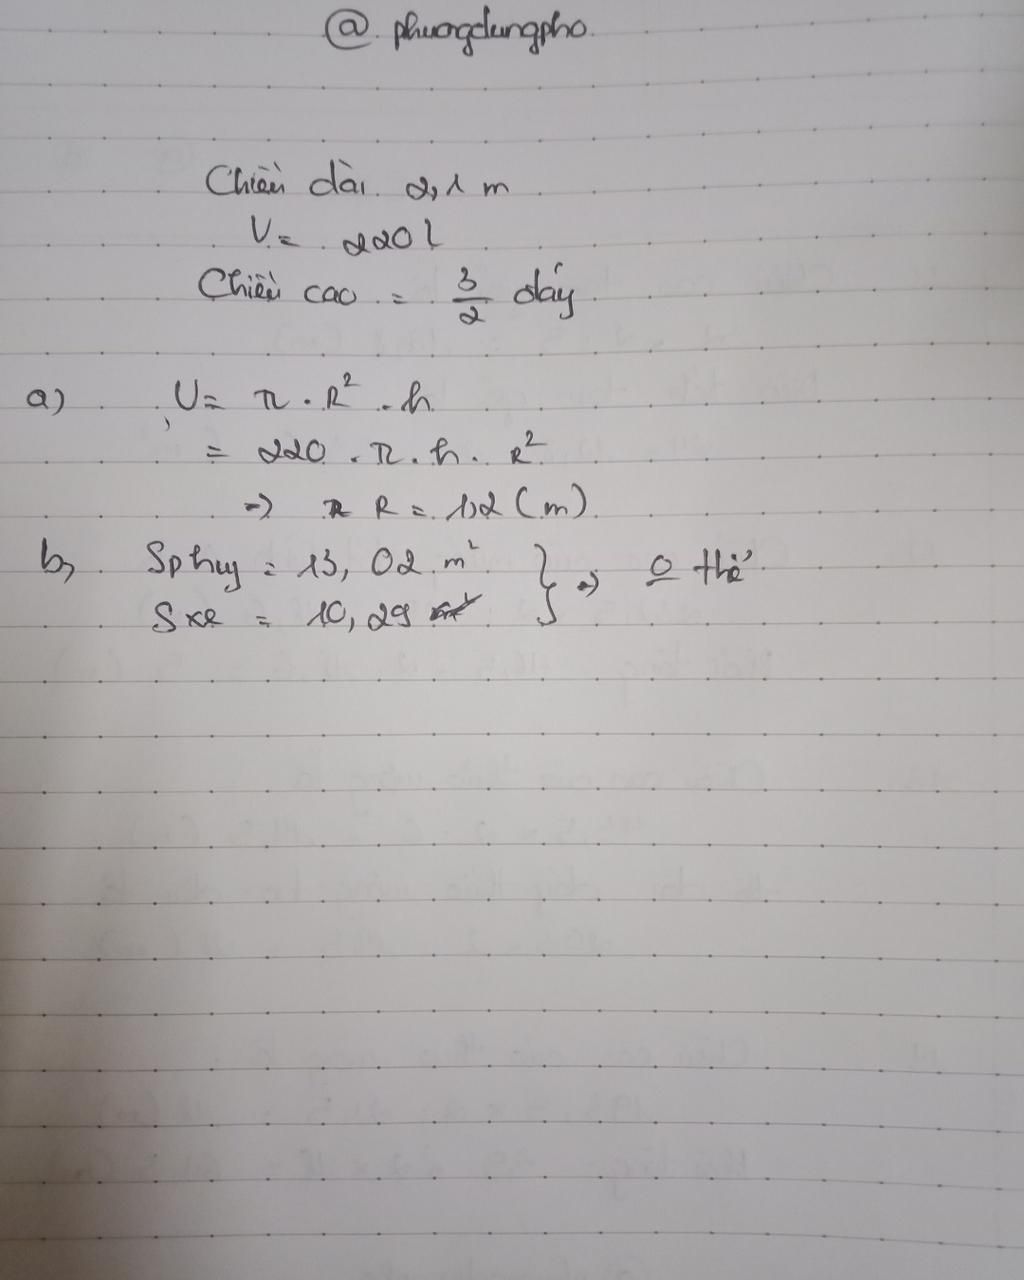 @ phuongdungpho.
Chiều dài 2,1 m
V = 220 l
Chiều cao = 3/2 đáy
a) V = π . R² . h
= 220 . π . h . R²
=> R = 1,2 (m)
b, Sphuy = 13,02 m² } => 0 thể
Sxe = 10,29